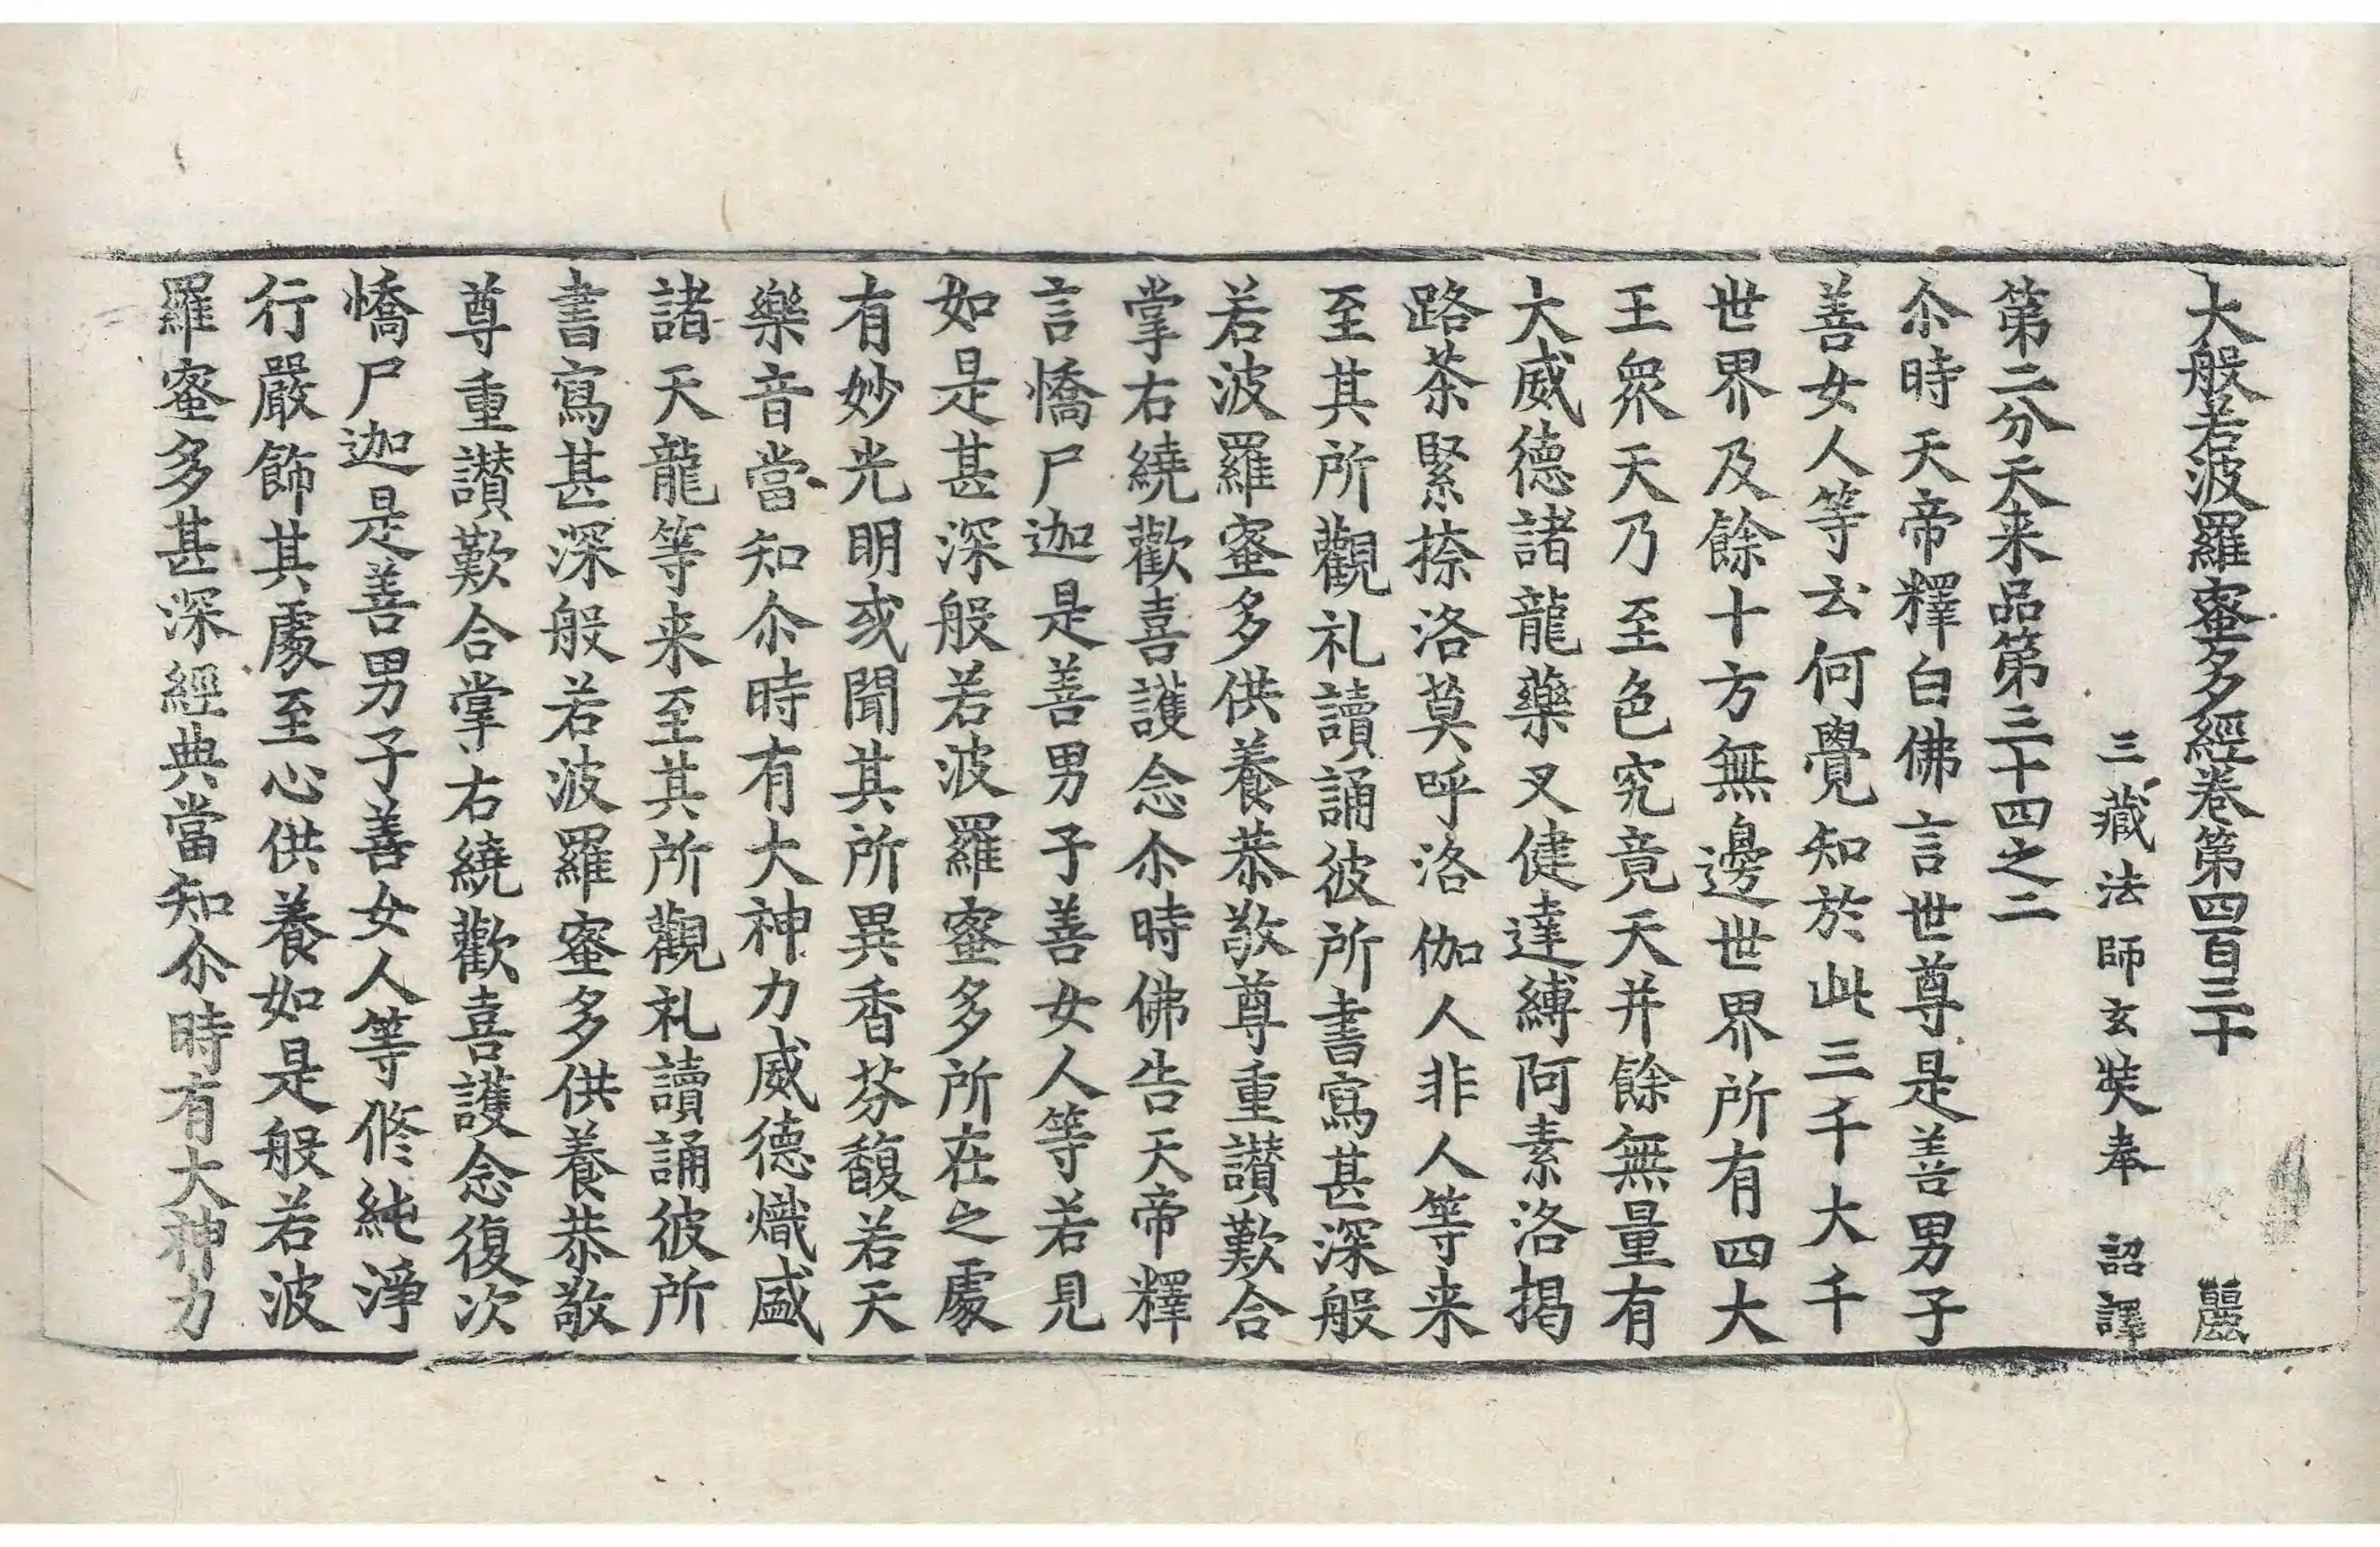 大般若波羅蜜多經卷第四百三十 麗
三藏法師玄奘奉 詔譯
第二分天来品第三十四之二
尒時天帝釋白佛言世尊是善男子
善女人等云何覺知於此三千大千
世界及餘十方無邊世界所有四大
王衆天乃至色究竟天并餘無量有
大威德諸龍藥叉健達縛阿素洛揭
路茶緊捺洛莫呼洛伽人非人等来
至其所觀礼讀誦彼所書寫甚深般
若波羅蜜多供養恭敬尊重讃歎合
掌右繞歡喜護念尒時佛告天帝釋
言憍尸迦是善男子善女人等若見
如是甚深般若波羅蜜多所在之處
有妙光明或聞其所異香芬馥若天
樂音當知尒時有大神力威德熾盛
諸天龍等来至其所觀礼讀誦彼所
書寫甚深般若波羅蜜多供養恭敬
尊重讃歎合掌右繞歡喜護念復次
憍尸迦是善男子善女人等修純淨
行嚴飾其處至心供養如是般若波
羅蜜多甚深經典當知尒時有大神力